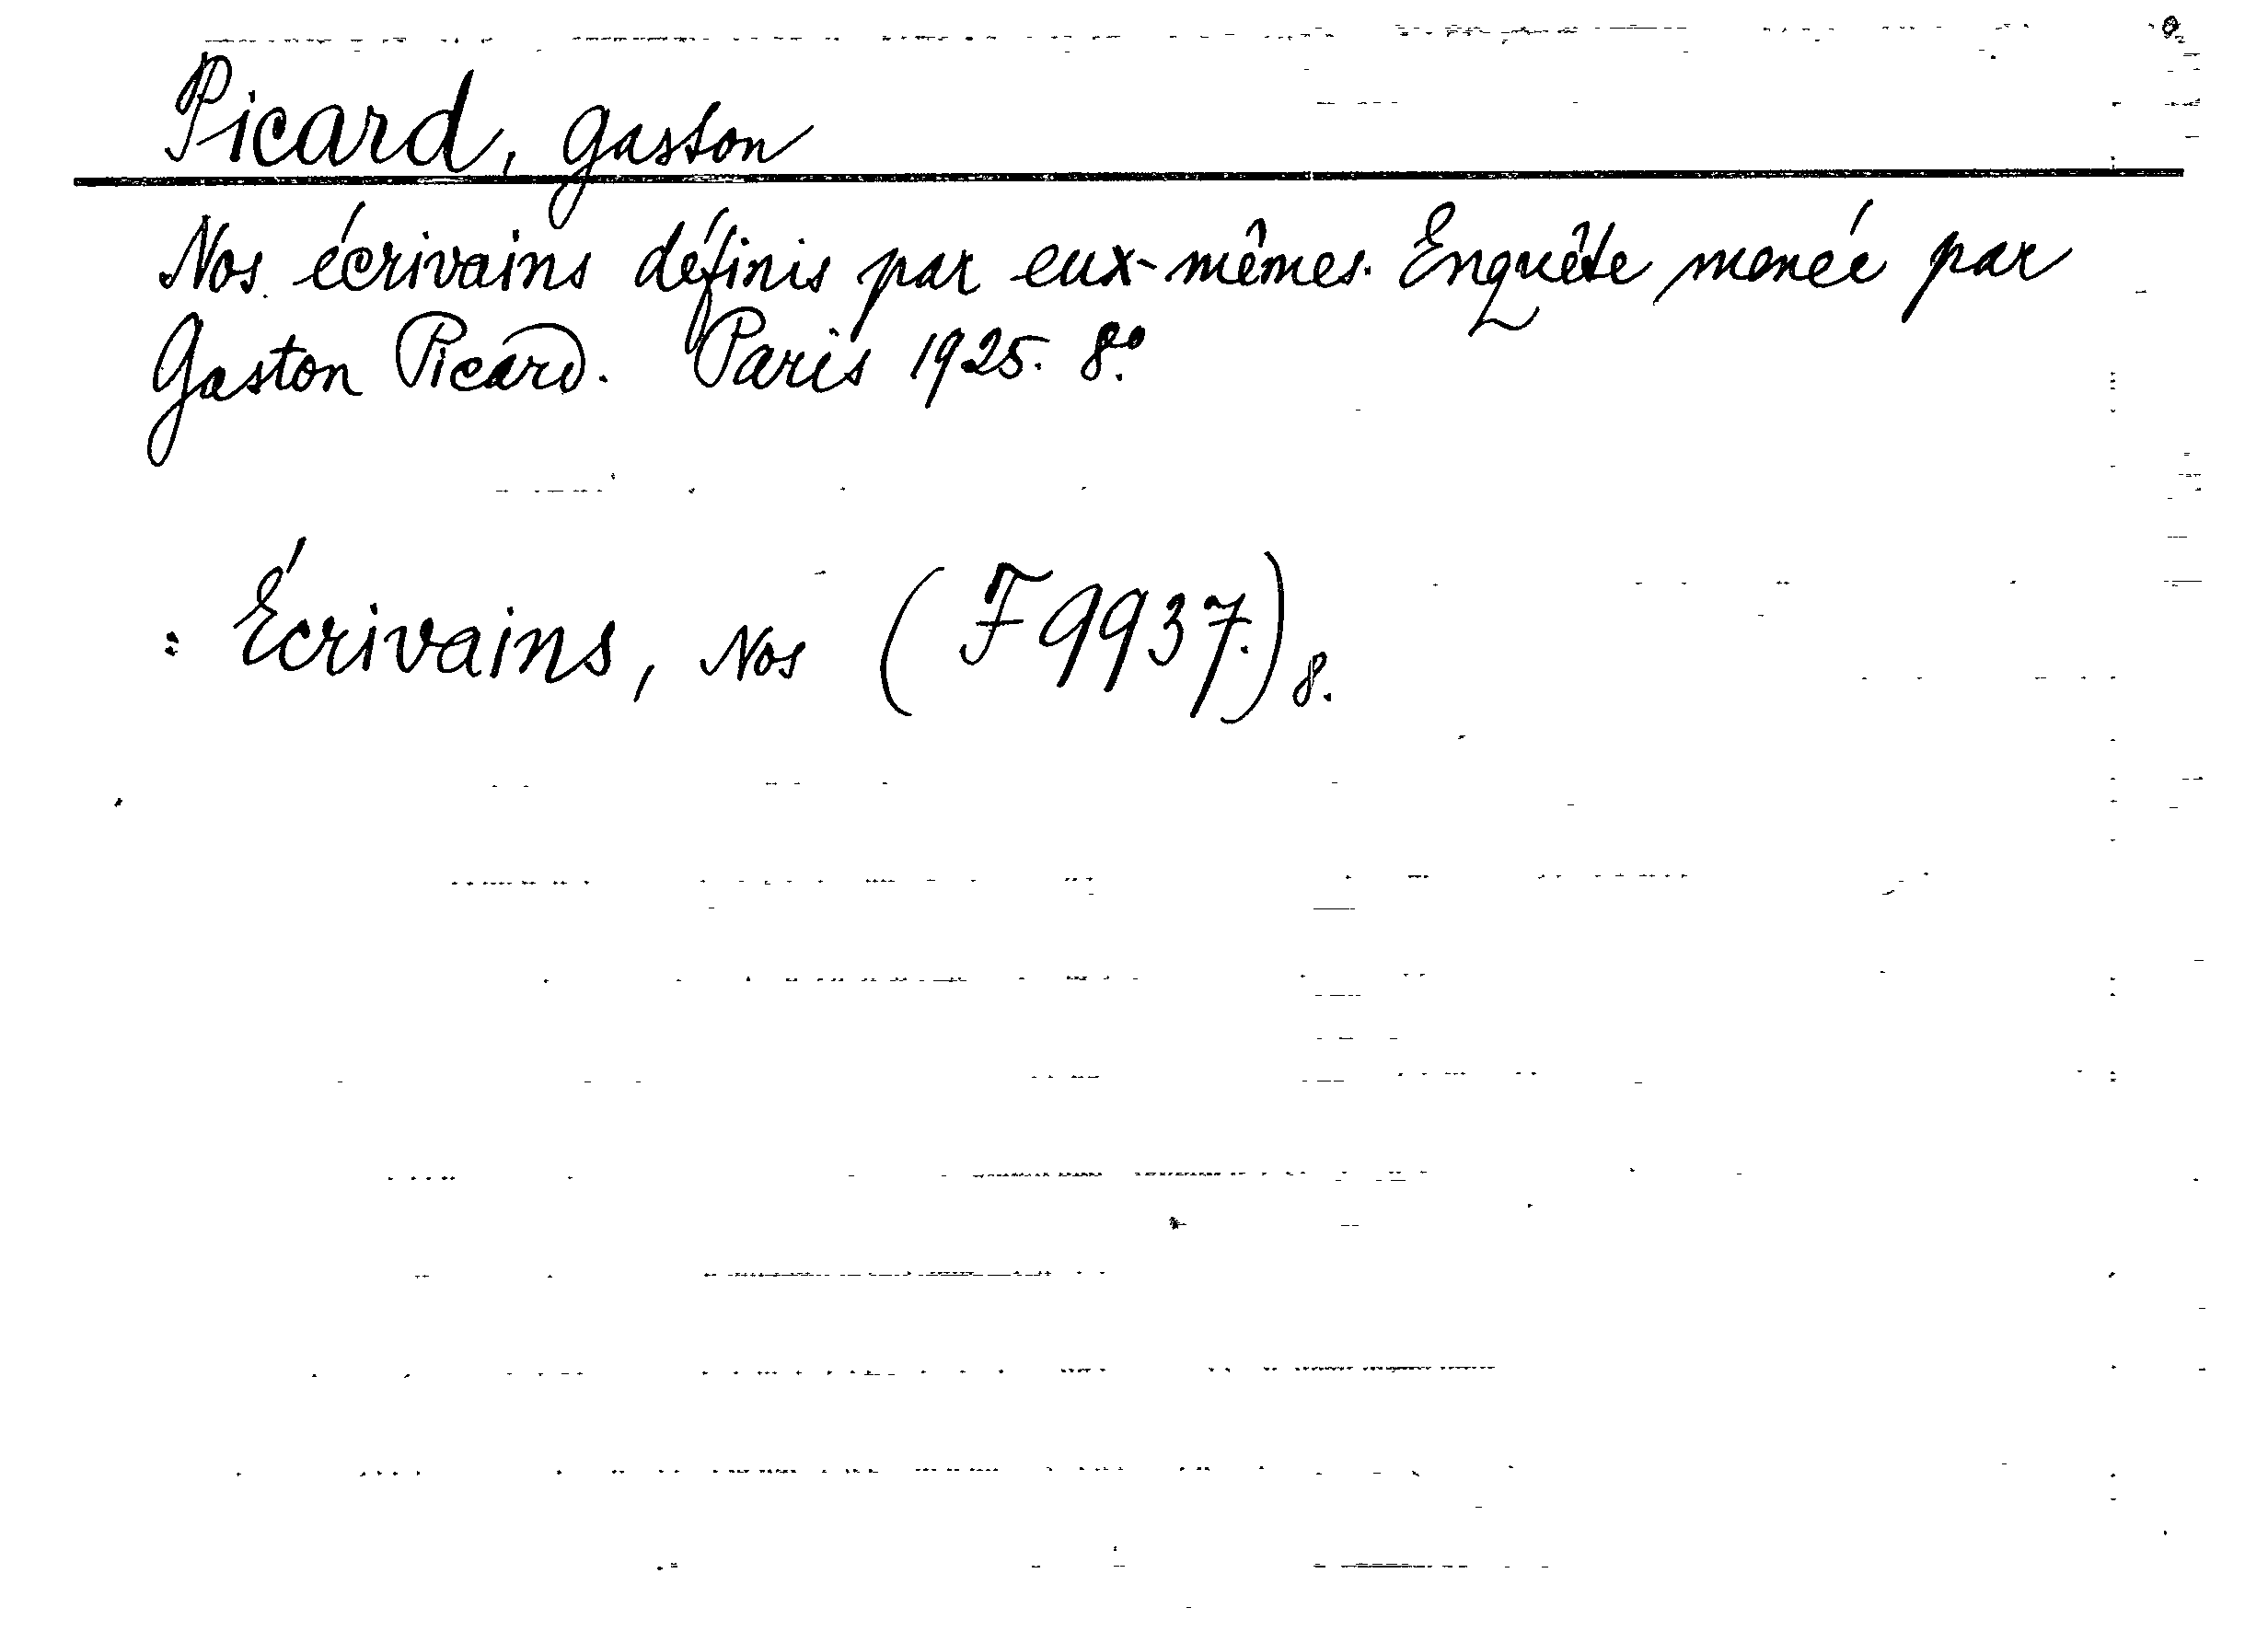 Picard, Gaston
Nos écrivains définis par eux-mêmes. Enquête menée par
Gaston Picard. Paris 1925. 8°.
: Écrivains, Nos (F 9937.) 8.